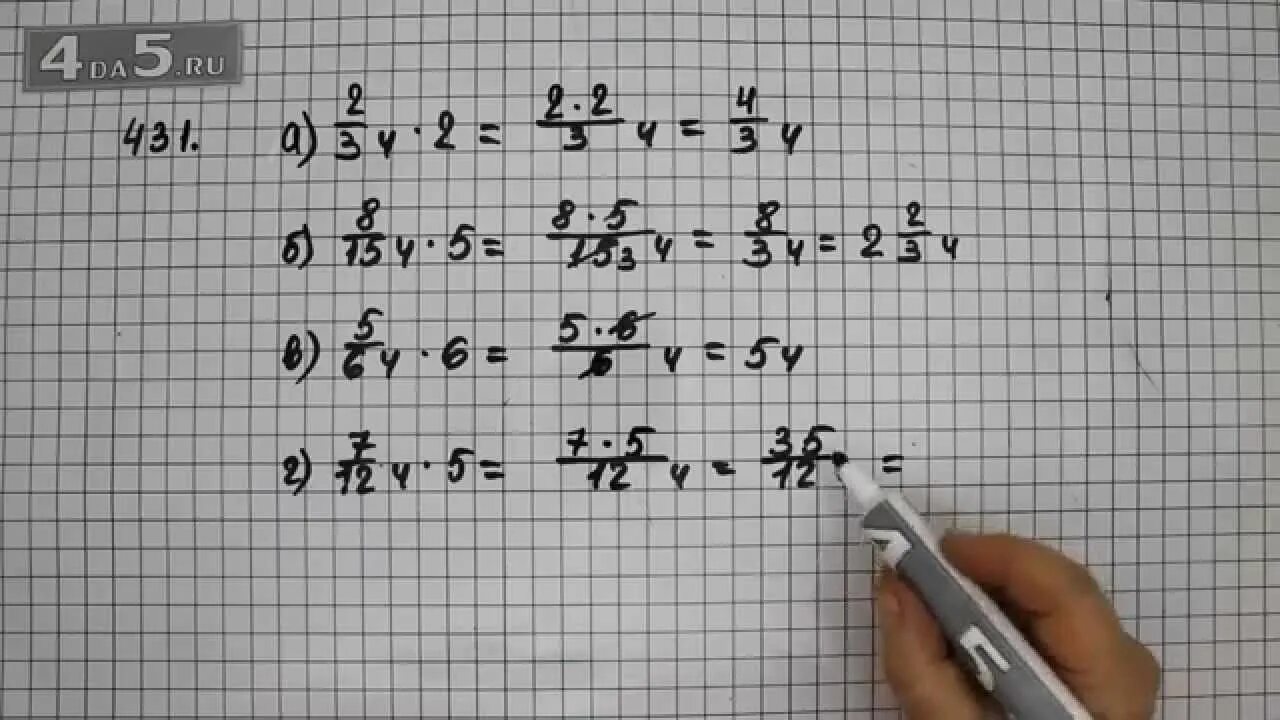 4DA5.RU
431. а) 2/3 ч · 2 = 2·2/3 ч = 4/3 ч
б) 8/15 ч · 5 = 8·5/15 3 ч = 8/3 ч = 2 2/3 ч
в) 5/6 ч · 6 = 5·6/6 ч = 5ч
г) 7/12 ч · 5 = 7·5/12 ч = 35/12 =